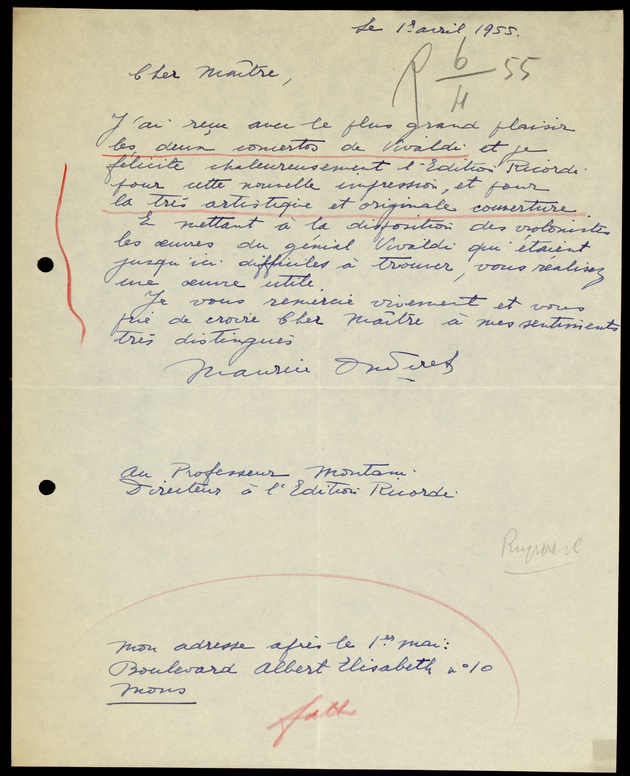 Le 1er avril 1955.
R 6/4 55
Cher Maître,
J'ai reçu avec le plus grand plaisir
les deux concertos de Vivaldi et je
félicite chaleureusement l'Edition Ricordi
pour cette nouvelle impression, et pour
la très artistique et originale couverture.
E mettant à la disposition des violonistes
les œuvres du génial Vivaldi qui étaient
jusqu'ici difficiles à trouver, vous réalisez
une œuvre utile.
Je vous remercie vivement et vous
prie de croire Cher Maître à mes sentiments
très distingués
Maurice
Au Professeur Montani
Directeur à l'Edition Ricordi
Mon adresse après le 1er mai:
Boulevard Albert Elisabeth n°10
Mons
fatto